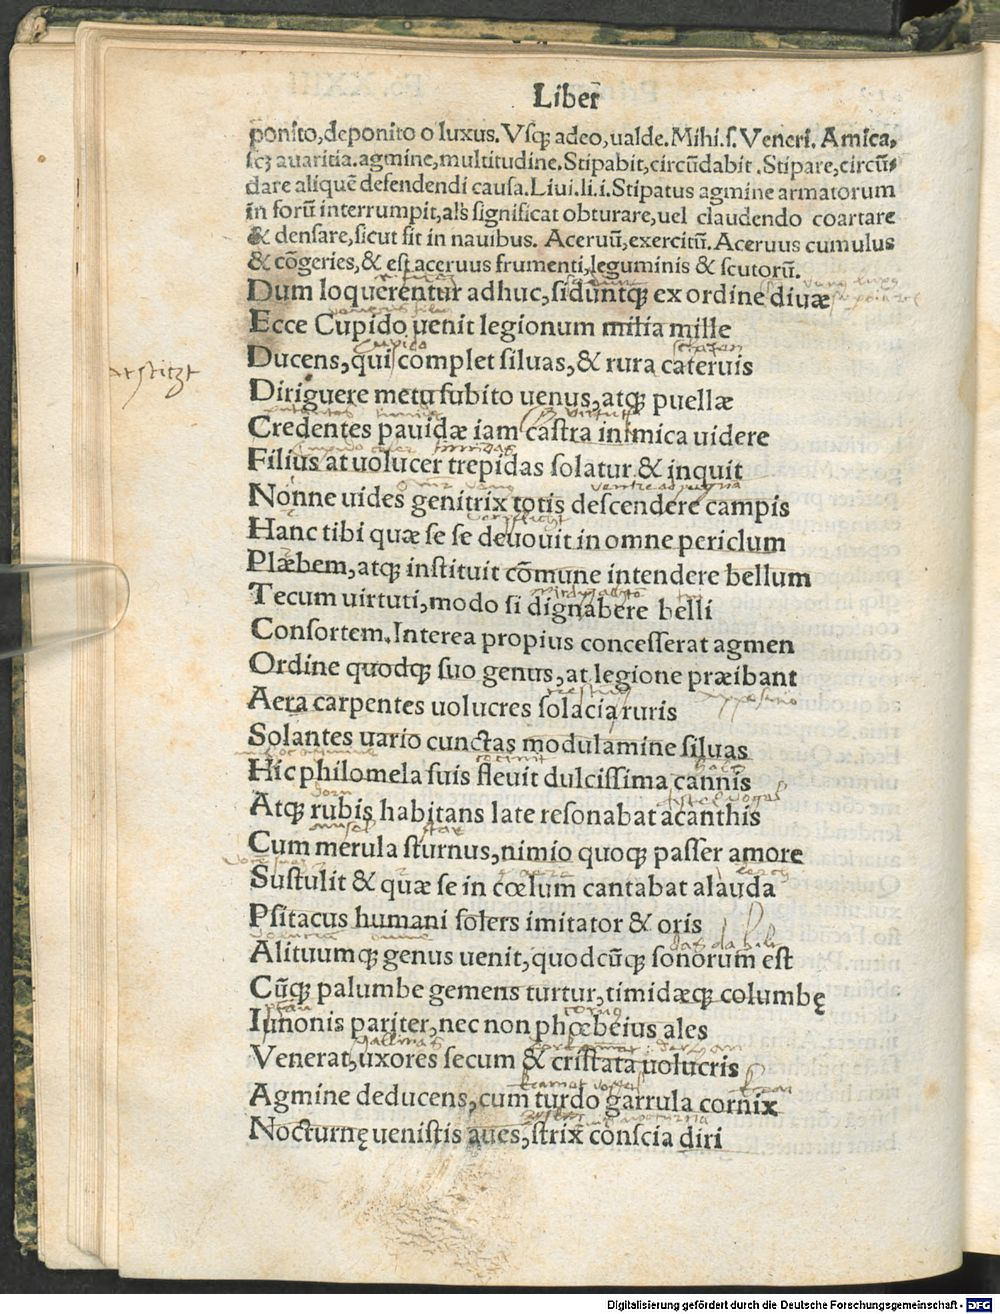 Liber
ponito,deponito o luxus. Vsq; adeo,ualde. Mihi.s. Veneri. Amica,
scz auaritia.agmine,multitudine.Stipabit,circũdabit.Stipare,circũ-
dare aliquẽ defendendi causa.Liui.li.i.Stipatus agmine armatorum
in forũ interrumpit,als significat obturare,uel claudendo coartare
& densare,sicut fit in nauibus. Aceruũ,exercitũ. Aceruus cumulus
& cõgeries,& est aceruus frumenti,leguminis & scutorũ.
Dum loquerentur adhuc,siduntq; ex ordine diuæ
Ecce Cupido uenit legionum milia mille
Ducens,qui complet siluas,& rura cateruis
Diriguere metu subito uenus,atq; puellæ
Credentes pauidæ iam castra inimica uidere
Filius at uolucer trepidas solatur & inquit
Nonne uides genitrix totis descendere campis
Hanc tibi quæ se se deuouit in omne periclum
Plæbem,atq; instituit cõmune intendere bellum
Tecum uirtuti,modo si dignabere belli
Consortem.Interea propius concesserat agmen
Ordine quodq; suo genus,at legione præibant
Aera carpentes uolucres solacia ruris
Solantes uario cunctas modulamine siluas
Hic philomela suis fleuit dulcissima cannis
Atq; rubis habitans late resonabat acanthis
Cum merula sturnus,nimio quoq; passer amore
Sustulit & quæ se in cœlum cantabat alauda
Psitacus humani solers imitator & oris
Alituumq; genus uenit,quodcũq; sonorum est
Cũq; palumbe gemens turtur,timidæq; columbę
Iunonis pariter,nec non phœbeius ales
Venerat,uxores secum & cristata uolucris
Agmine deducens,cum turdo garrula cornix
Nocturnę uenistis aues,strix conscia diri
Digitalisierung gefördert durch die Deutsche Forschungsgemeinschaft - DFG